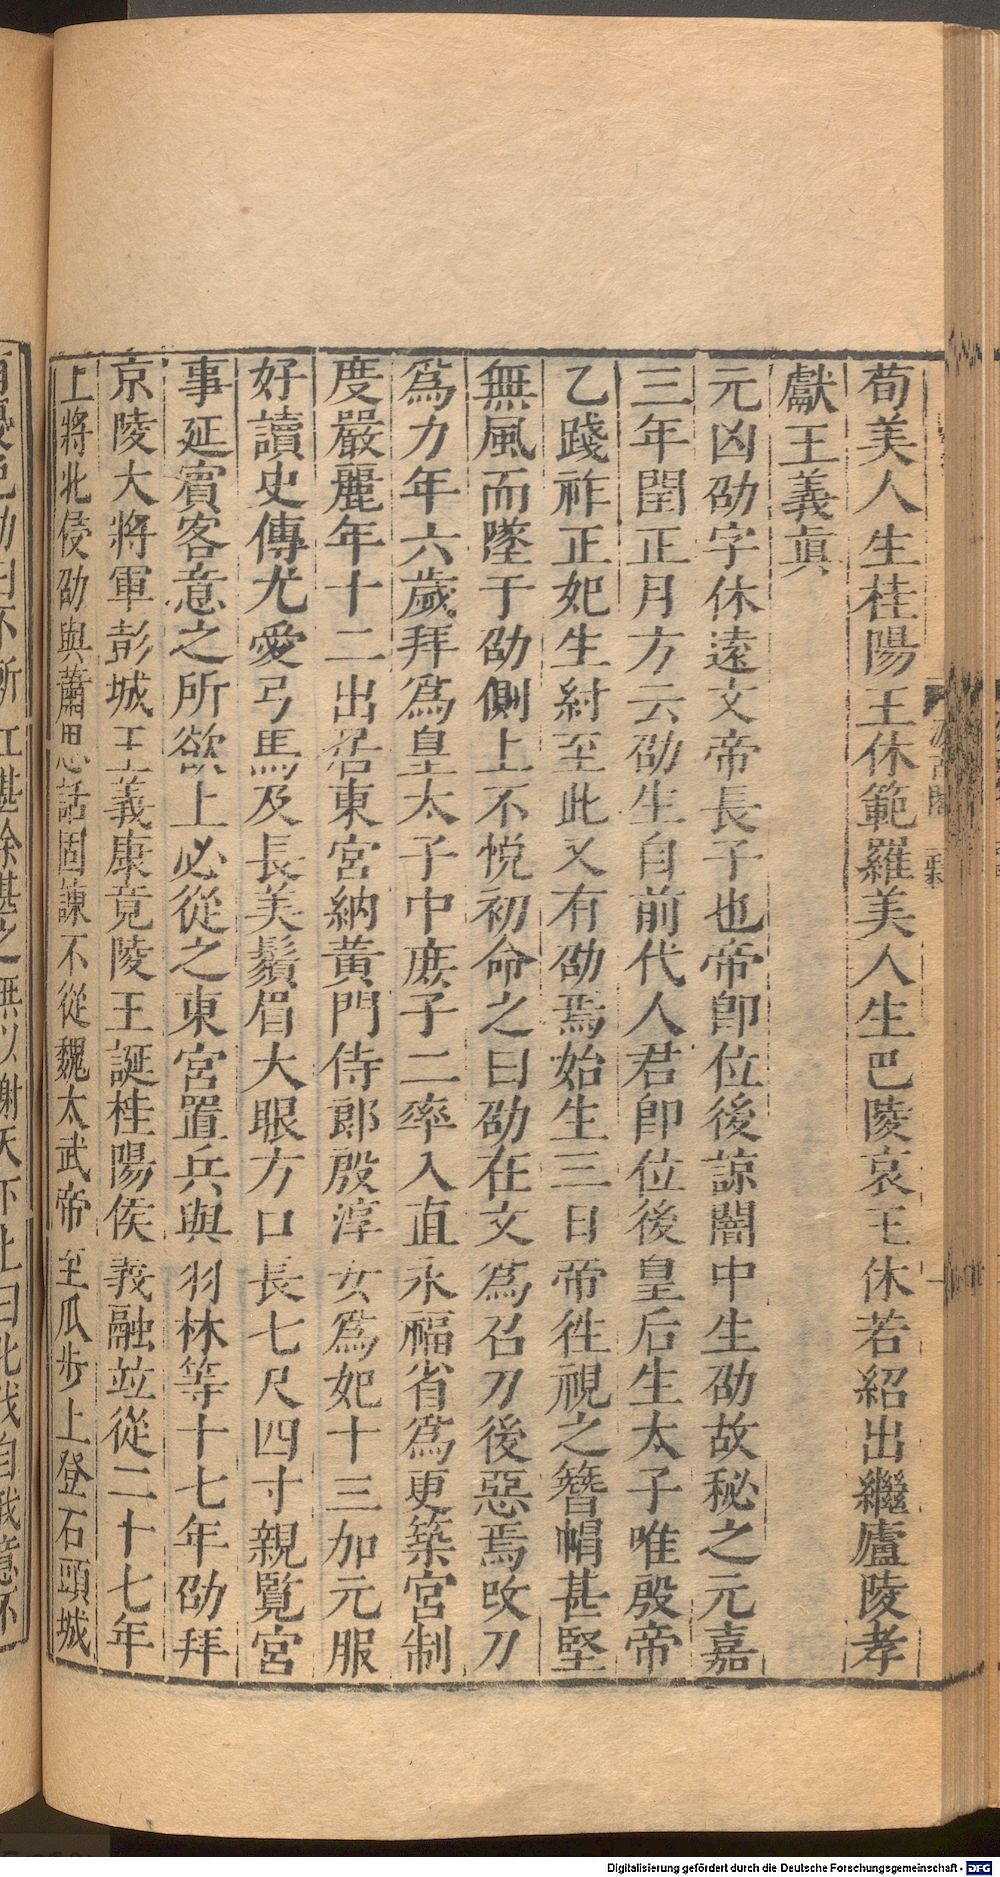 荀美人生桂陽王休範羅美人生巴陵哀王休若紹出繼廬陵孝
獻王義眞
元凶劭字休遠文帝長子也帝卽位後諒闇中生劭故秘之元嘉
三年閏正月方云劭生自前代人君卽位後皇后生太子唯殷帝
乙踐祚正妃生紂至此又有劭焉始生三日帝徃視之簪帽甚堅
無風而墜于劭側上不悅初命之曰劭在文爲召刀後惡焉改刀
爲力年六歲拜爲皇太子中庶子二率入直永福省爲更築宮制
度嚴麗年十二出居東宮納黃門侍郎殷淳女爲妃十三加元服
好讀史傳尤愛弓馬及長美鬚眉大眼方口長七尺四寸親覽宮
事延賓客意之所欲上必從之東宮置兵與羽林等十七年劭拜
京陵大將軍彭城王義康竟陵王誕桂陽侯義融竝從二十七年
上將北侵劭與蕭思話固諫不從魏太武帝至瓜步上登石頭城
有憂色劭曰不斬江湛徐湛之無以謝天下上曰北伐自我意不
Digitalisierung gefördert durch die Deutsche Forschungsgemeinschaft - DFG